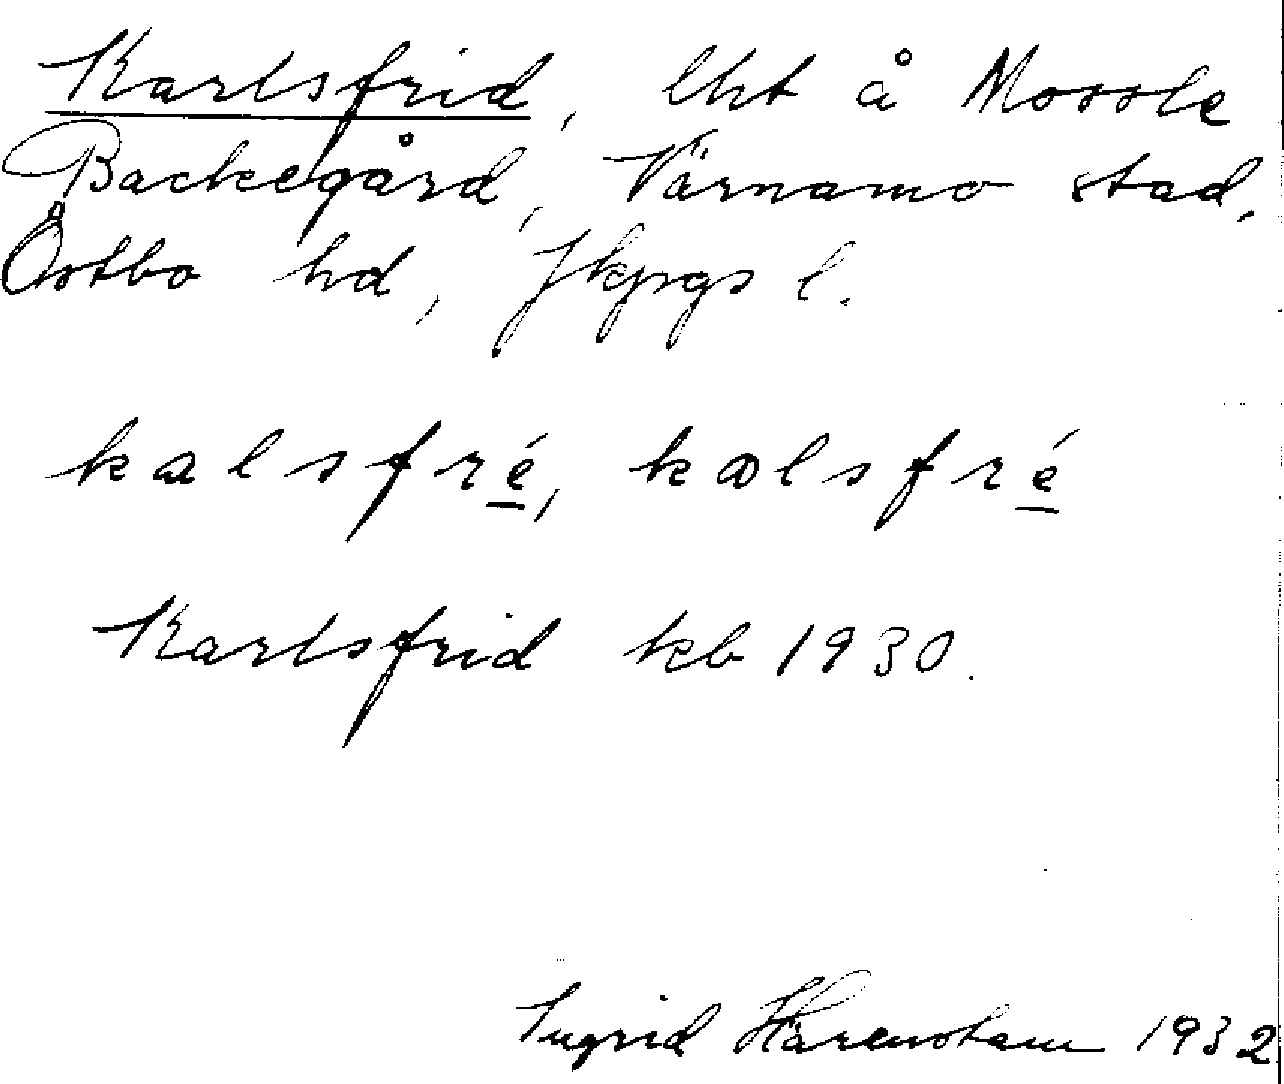 Karlsfrid, lht å Mossle
Backegård, Värnamo stad,
Östbo hd, Jkpgs l.
kalsfré, kɑlsfré
Karlsfrid kb 1930.
Ingrid Härenstam 1932